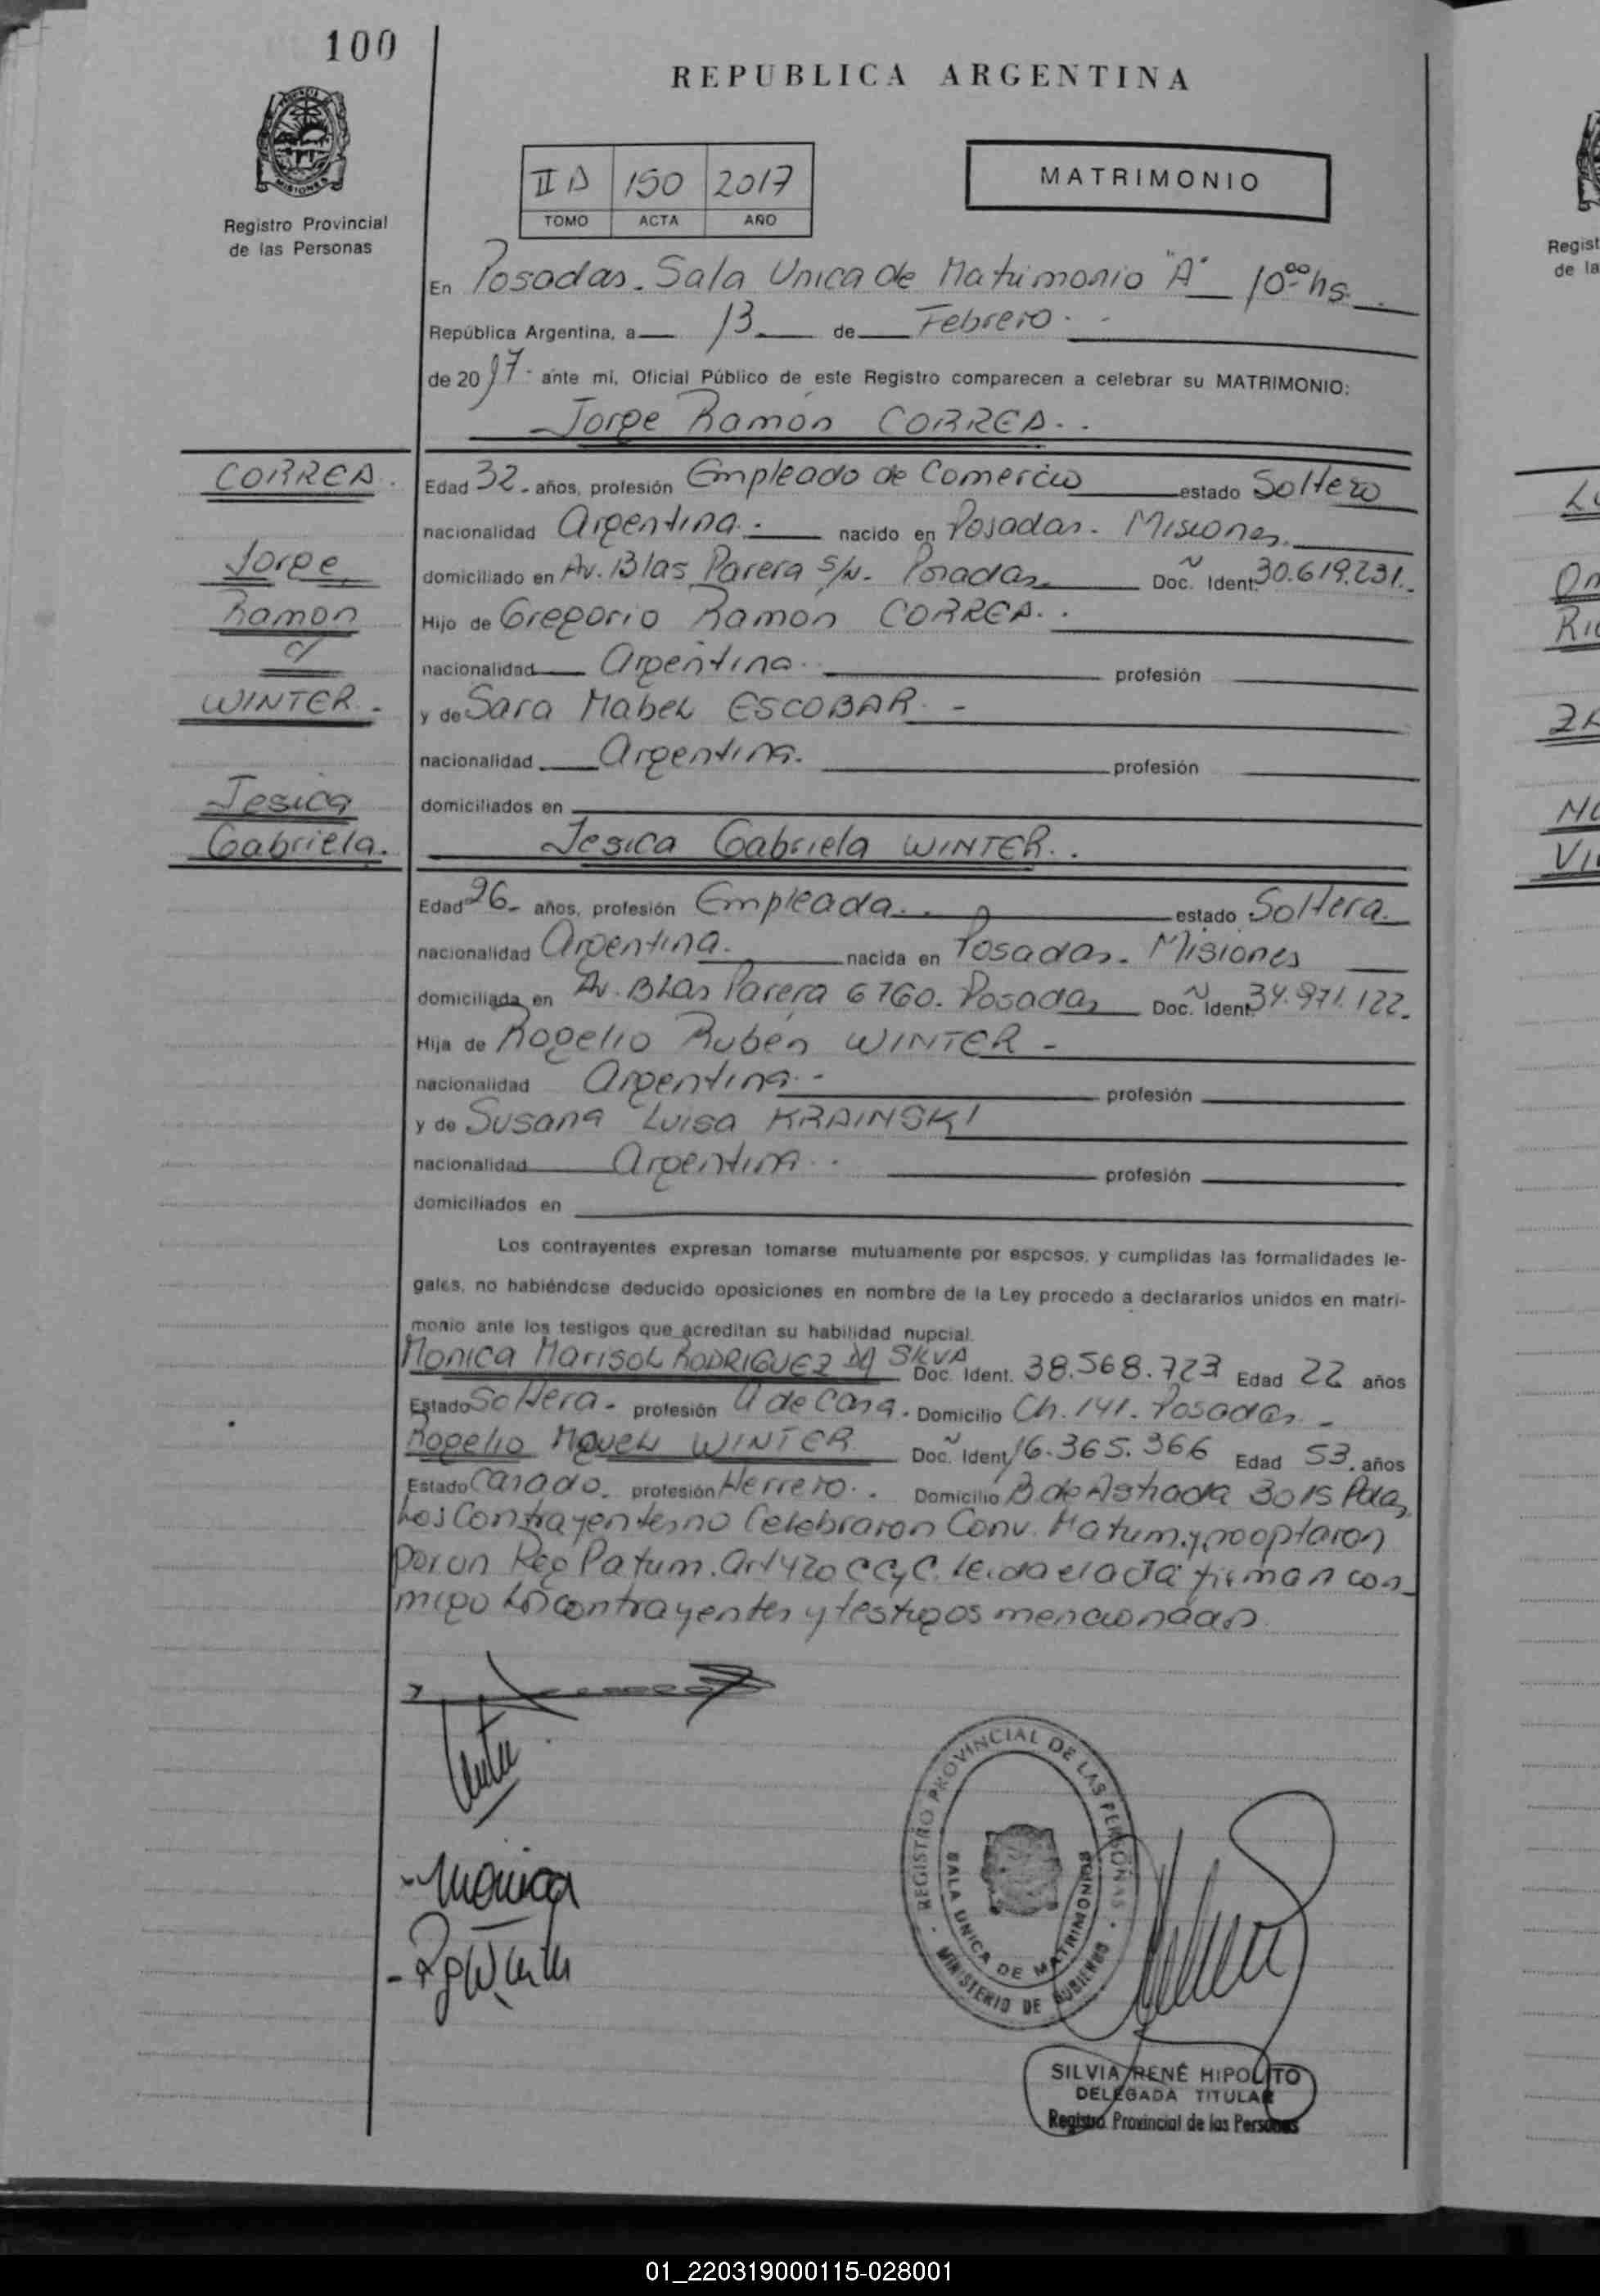 100
REPUBLICA ARGENTINA
MISIONES
Registro Provincial
de las Personas
II D 150 2017
TOMO ACTA AÑO
MATRIMONIO
En Posadas. Sala Unica de Matrimonio "A" 10ºº hs.
República Argentina, a 13 de Febrero.
de 2017. ante mi, Oficial Público de este Registro comparecen a celebrar su MATRIMONIO:
Jorge Ramón CORREA.
CORREA.
Jorge
Ramon
c/
WINTER.
Jesica
Gabriela.
Edad 32. años, profesión Empleado de Comercio estado Soltero
nacionalidad Argentina. nacido en Posadas. Misiones.
domiciliado en Av. Blas Parera s/n. Posadas Doc. Ident. 30.619.231.
Hijo de Gregorio Ramón CORREA.
nacionalidad Argentina. profesión
y de Sara Mabel ESCOBAR. -
nacionalidad Argentina. profesión
domiciliados en
Jesica Gabriela WINTER.
Edad 26. años, profesión Empleada. estado Soltera.
nacionalidad Argentina. nacida en Posadas. Misiones
domiciliada en Av. Blas Parera 6760. Posadas Doc. Ident. 34.971.122.
Hija de Rogelio Rubén WINTER -
nacionalidad Argentina. - profesión
y de Susana Luisa KRAINSKI
nacionalidad Argentina. profesión
domiciliados en
Los contrayentes expresan tomarse mutuamente por esposos, y cumplidas las formalidades le-
gales, no habiéndose deducido oposiciones en nombre de la Ley procedo a declararlos unidos en matri-
monio ante los testigos que acreditan su habilidad nupcial.
Monica Marisol RODRIGUEZ DA SILVA Doc. Ident. 38.568.723 Edad 22 años
Estado Soltera. profesión A de Casa. Domicilio Ch. 141. Posadas. -
Rogelio Miguel WINTER Doc. Ident. 16.365.366 Edad 53. años
Estado Casado. profesión Herrero. Domicilio B de Astrada 3015 Pdas,
Los Contrayentes no Celebraron Conv. Matrim. y no optaron
por un Reg Patrim. Art 420 CCyC. Leida el acta firman con
migo los contrayentes y testigos mencionados
Monica
REGISTRO PROVINCIAL DE LAS PERSONAS
SALA UNICA DE MATRIMONIOS
MINISTERIO DE GOBIERNO
SILVIA RENÉ HIPOLITO
DELEGADA TITULAR
Registro Provincial de las Personas
Regist
de la
01_220319000115-028001